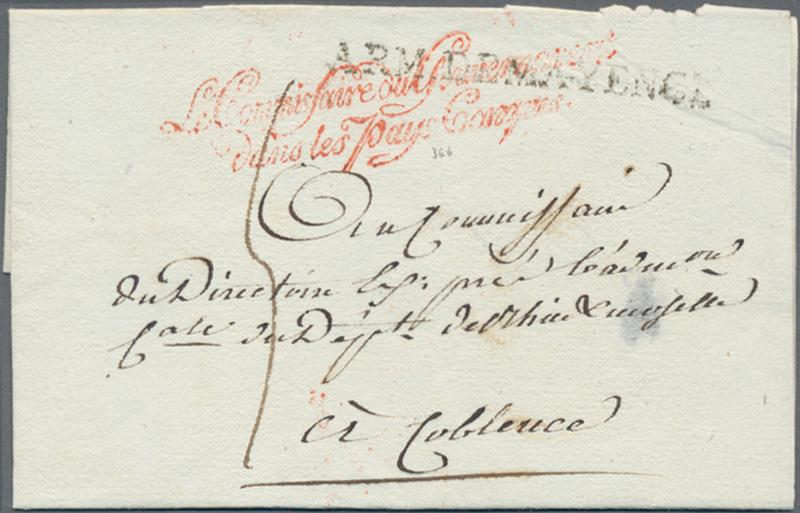 ARM. DE MAYENCE
Le Commissaire du Gouvernement
dans les Pays Conquis.
366
Au Commissaire
du Directoire Ex.f près l'adm.on
C.ale du Dép.t de Rhin & moselle
à Coblence